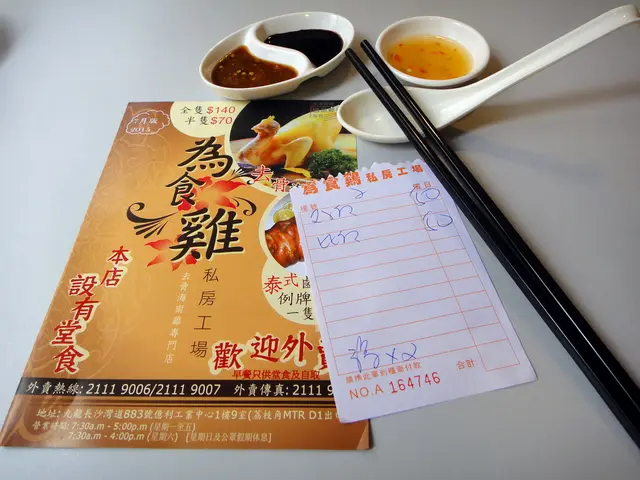 7月版
2015
全隻$140
半隻$70
為食雞
去骨
私房工場
去骨海南雞專門店
本店
設有堂食
泰式
例牌
一隻
歡迎外賣
早餐只供堂食及自取
外賣熱線: 2111 9006/2111 9007 外賣傳真: 2111 9
地址: 九龍長沙灣道883號億利工業中心1樓9室(荔枝角MTR D1出
營業時間: 7:30a.m - 5:00p.m (星期一至五)
7:30a.m - 4:00p.m (星期六) [星期日及公眾假期休息]
為食鷄私房工場
x2
請携此單到櫃面付款
合計
NO.A 164746